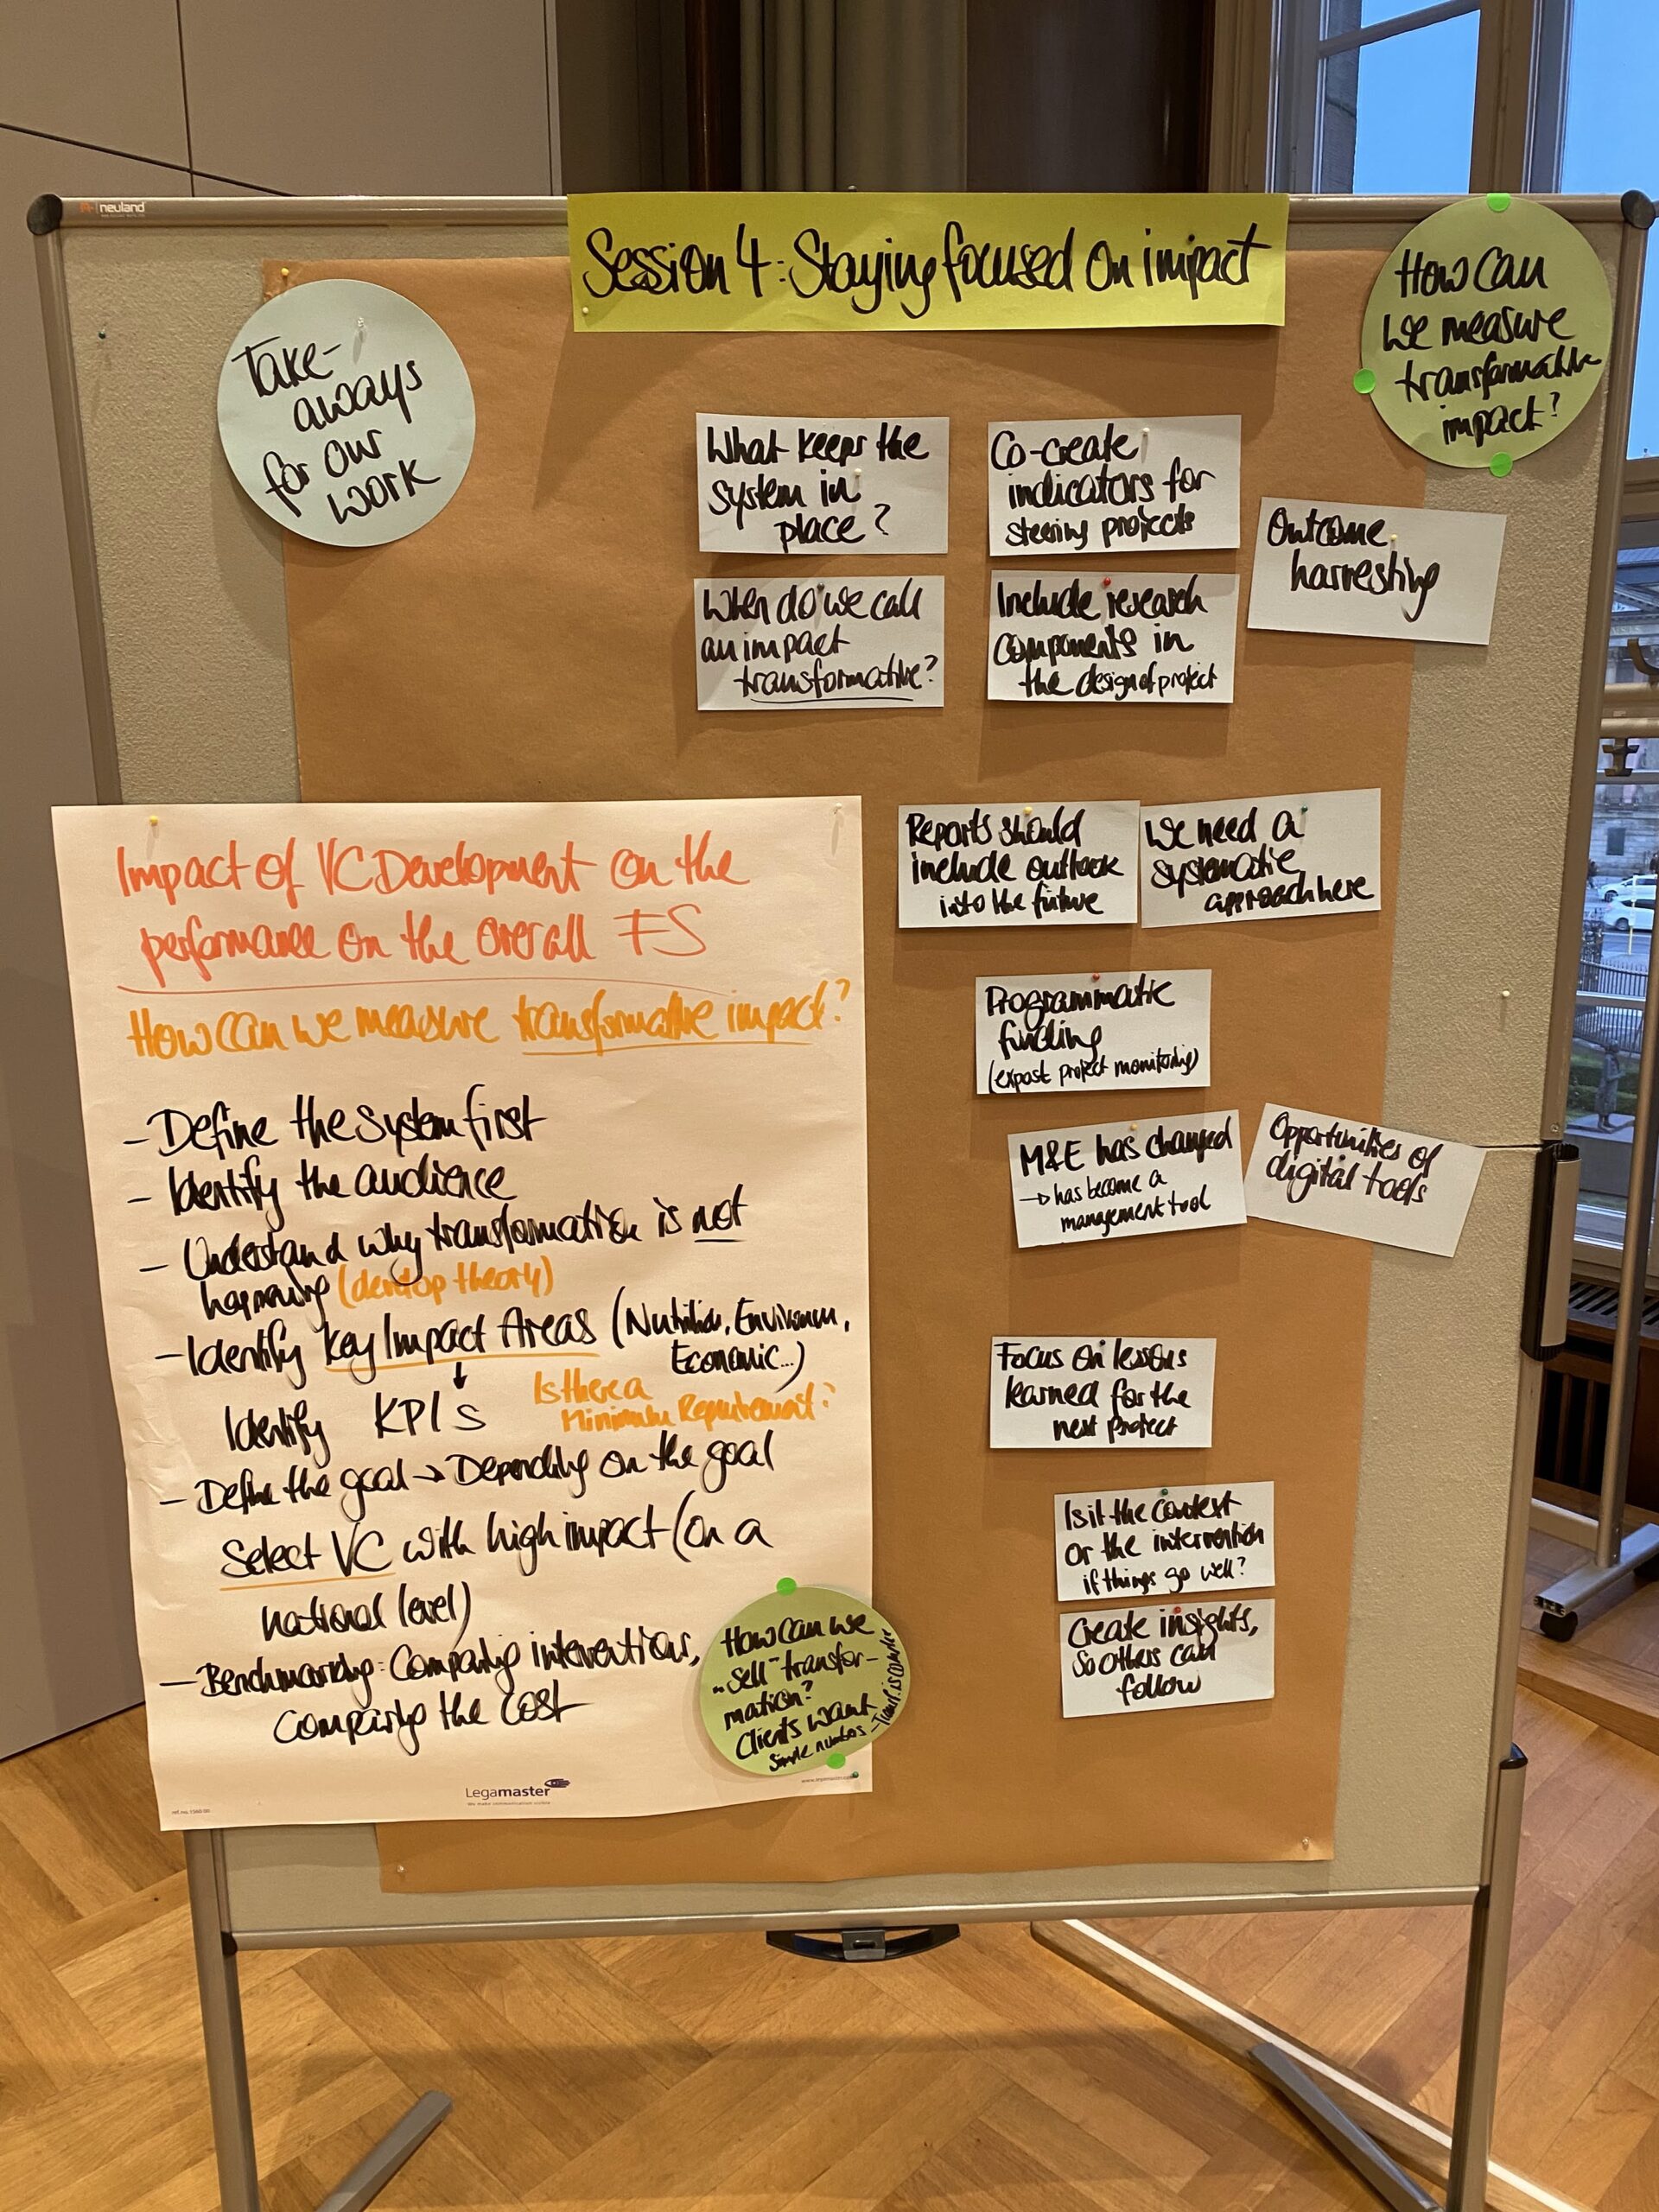 neuland
Session 4: Staying focused on impact
Take-
aways
for our
work
How can
we measure
transformative
impact?
What keeps the
system in
place?
When do we call
an impact
transformative?
Co-create
indicators for
steering projects
Include research
components in
the design of project
Outcome
harvesting
Reports should
include outlook
into the future
We need a
systematic
approach here
Programmatic
funding
(expost project monitoring)
M&E has changed
→ has become a
management tool
Opportunities of
digital tools
Focus on lessons
learned for the
next project
Is it the context
or the intervention
if things go well?
Create insights,
so others can
follow
Impact of VC Development on the
performance on the overall FS
How can we measure transformative impact?
- Define the system first
- Identify the audience
- Understand why transformation is not
happening (develop theory)
- Identify key Impact Areas (Nutrition, Environm,
Economic...)
↓
Identify KPIs
Is there a
Minimum Requirement?
- Define the goal → Depending on the goal
Select VC with high impact (on a
national level)
- Benchmarking: Comparing interventions,
comparing the cost
How can we
"sell" transfor-
mation?
Clients want
simple numbers -
Legamaster